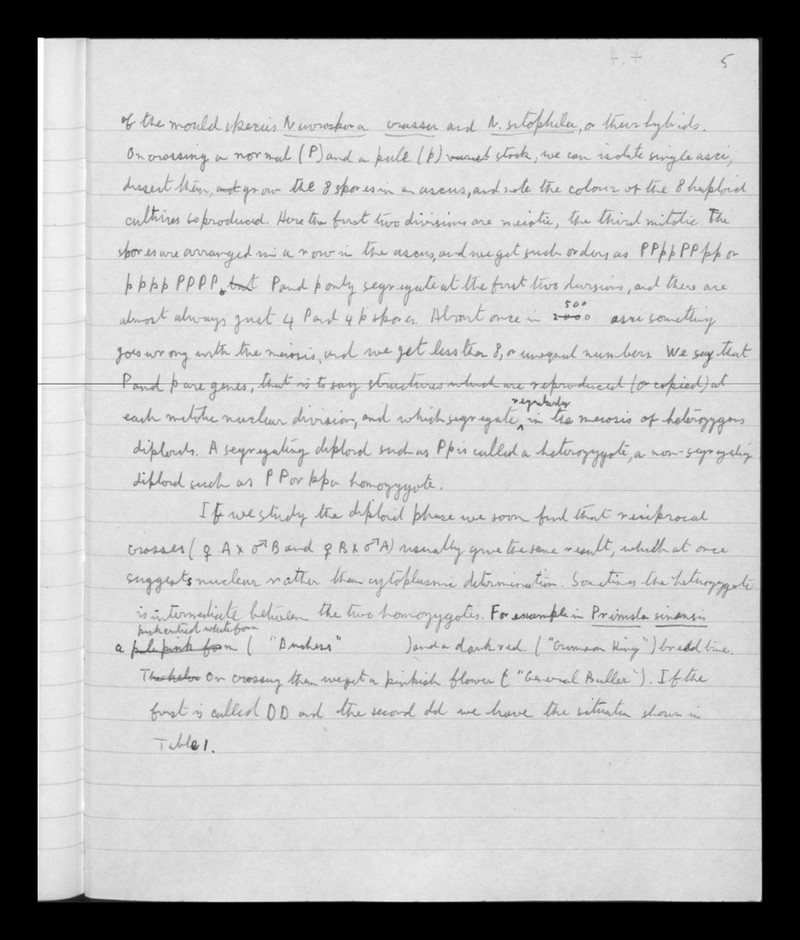 5
of the mould species Neurospora crassa and N. sitophila, or their hybrids.
On crossing a normal (P) and a pale (p) stock, we can isolate single asci,
dissect them, grow the 8 spores in an ascus, and note the colour of the 8 haploid
cultures so produced. Here the first two divisions are meiotic, the third mitotic. The
spores are arranged in a row in the ascus, and we get such orders as PPppPPpp or
ppppPPPP, but P and p only segregate at the first two divisions, and there are
almost always just 4 P and 4 p spores. About once in 500 asci something
goes wrong with the meiosis, and we get less than 8, or unequal numbers. We say that
P and p are genes, that is to say structures which are reproduced (or copied) at
each mitotic nuclear division, and which segregate regularly in the meiosis of heterozygous
diploids. A segregating diploid such as Pp is called a heterozygote, a non-segregating
diploid such as PP or pp a homozygote.
If we study the diploid phase we soon find that reciprocal
crosses (♀ A x ♂ B and ♀ B x ♂ A) usually give the same result, which at once
suggests nuclear rather than cytoplasmic determination. Sometimes the heterozygote
is intermediate between the two homozygotes. For example in Primula sinensis
a white form ( "Duchess" ) and a dark red ( "Crimson King" ) breed true.
On crossing them we get a pinkish flower ( "General Buller" ). If the
first is called DD and the second dd we have the situation shown in
Table 1.